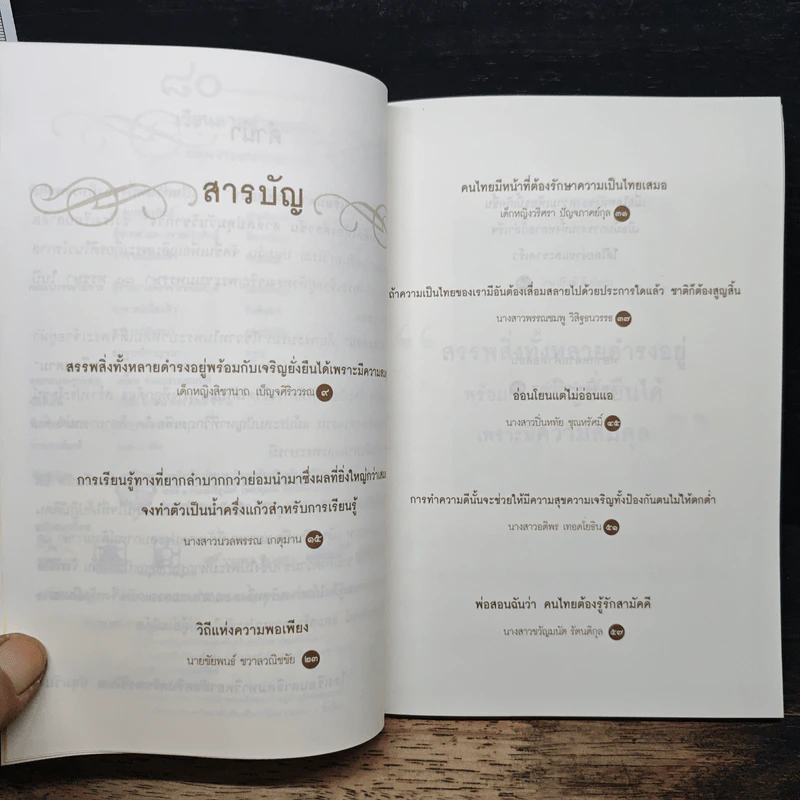 สารบัญ
สรรพสิ่งทั้งหลายดำรงอยู่พร้อมกับเจริญยั่งยืนได้เพราะมีความ
เด็กหญิงสิชานาถ เบ็ญจศิริวรรณ ๙
การเรียนรู้ทางที่ยากลำบากกว่าย่อมนำมาซึ่งผลที่ยิ่งใหญ่กว่าเสมอ
จงทำตัวเป็นน้ำครึ่งแก้วสำหรับการเรียนรู้
นางสาวนวลพรรณ เกตุมาน ๑๕
วิถีแห่งความพอเพียง
นายชัยพนธ์ ชวาลวณิชชัย ๒๓
คนไทยมีหน้าที่ต้องรักษาความเป็นไทยเสมอ
เด็กหญิงวริศรา ปัญจภาคย์กุล ๓๑
ถ้าความเป็นไทยของเรามีอันต้องเสื่อมสลายไปด้วยประการใดแล้ว ชาติก็ต้องสูญสิ้น
นางสาวพรรณชมพู วิสิฐธนวรรธ ๓๗
อ่อนโยนแต่ไม่อ่อนแอ
นางสาวปิ่นหทัย ชุณหรัศมิ์ ๔๕
การทำความดีนั้นจะช่วยให้มีความสุขความเจริญทั้งป้องกันตนไม่ให้ตกต่ำ
นางสาวอติพร เทอดโยธิน ๕๑
พ่อสอนฉันว่า คนไทยต้องรู้รักสามัคคี
นางสาวขวัญมนัต รัตนดิกุล ๕๗